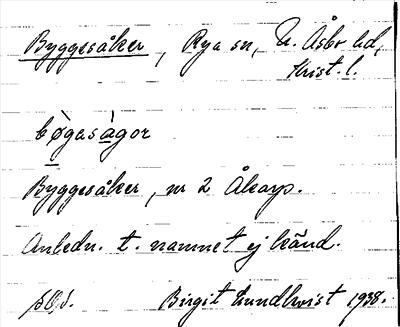 Byggesåker, Rya sn, N. Åsbo hd,
Krist. l.
bø̀gasàgor
Byggesåker, nr 2 Åkarp.
Anledn. t. namnet ej känd.
Birgit Lundkvist 1938.